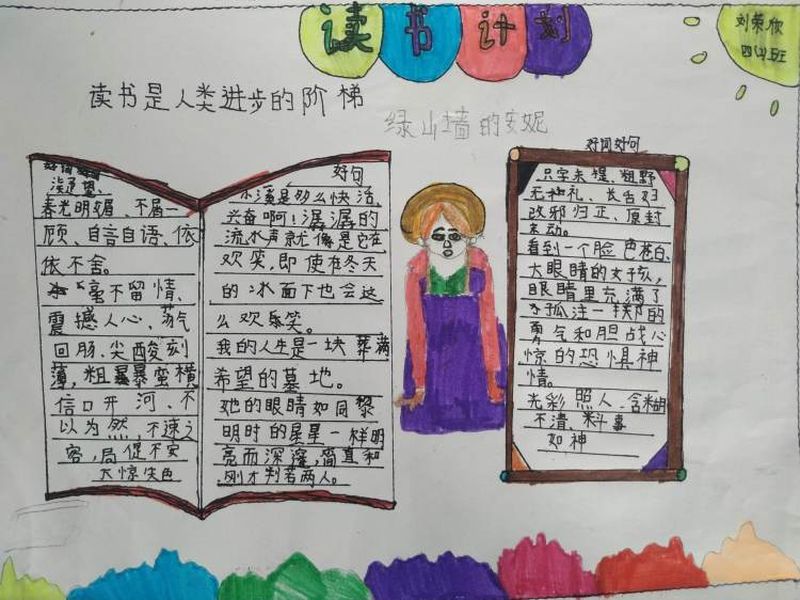 读书计划
刘荣欣
四(4)班
读书是人类进步的阶梯
绿山墙的安妮
春光明媚、不屑一
顾、自言自语、依
依不舍。
毫不留情、
震撼人心、荡气
回肠、尖酸刻
薄,粗暴蛮横
信口开河、不
以为然、不速之
客,局促不安
大惊失色
好句
小溪是多么快活,
兴奋啊!潺潺的
流水声就像是它在
欢笑,即使在冬天
的冰面下也会这
么欢乐笑。
我的人生是一块葬满
希望的墓地。
她的眼睛如同黎
明时的星星一样明
亮而深邃,简直和
刚才判若两人。
好词好句
只字未提、粗野
无礼、长舌妇
改邪归正、原封
未动。
看到一个脸色苍白、
大眼睛的女孩,
眼睛里充满了
孤注一掷的
勇气和胆战心
惊的恐惧神
情。
光彩照人、含糊
不清、料事
如神